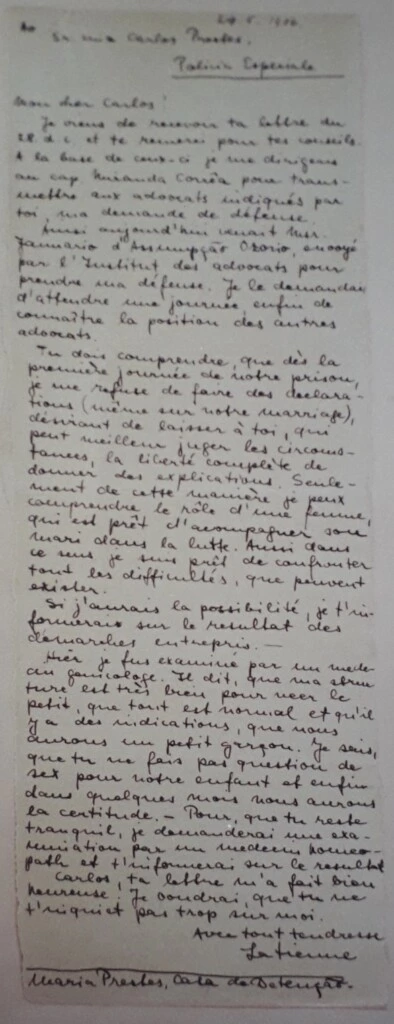 29.5.1936.
Ao
Sr. Luiz Carlos Prestes.
Policia Especiale
Mon cher Carlos!
Je viens de recevoir ta lettre du
28. d c. et te remerci pour tes conseils.
A la base de ceux-ci je me dirigeais
au cap Miranda Corrêa pour trans-
mettre aux advocats indiqués par
toi, ma demande de défense.
Ainsi aujourd'hui venait Msr.
Jannario d'Assumpção Ozorio, envoyé
par l'Institut des advocats pour
prendre ma défense. Je le demandai
d'attendre une journée enfin de
connaître la position des autres
advocats.
Tu dois comprendre, que dès la
première journée de notre prison,
je me refuse de faire des déclara-
tions (même sur notre marriage),
désirant de laisser à toi, qui
peut meilleur juger les circoms-
tances, la liberté complète de
donner des explications. Seule-
ment de cette manière je peux
comprendre le rôle d'une femme,
qui est prêt d'acompagner son
mari dans la lutte. Aussi dans
ce sens je suis prêt de confronter
tout les difficultés, que peuvent
exister.
Si j'aurais la possibilité, je t'in-
formerais sur le resultat des
démarches entrepris. —
Hièr je fus examiné par un mede-
cin genicologe. Il dit, que ma struc
ture est très bien pour le
petit, que tout est normal et qu'il
y a des indications, que nous
aurons un petit garçon. Je sais,
que tu ne fais pas question de
sex pour notre enfant et enfin
dans quelques mois nous aurons
la certitude. — Pour, que tu reste
tranquil, je demanderai une exa-
mination par un medecin homeo-
path et t'informerai sur le resultat
Carlos, ta lettre m'a fait bien
heureuse. Je voudrai, que tu ne
t'inquiet pas trop sur moi.
Avec tout tendresse
La tienne
Maria Prestes, Casa de Detenção.